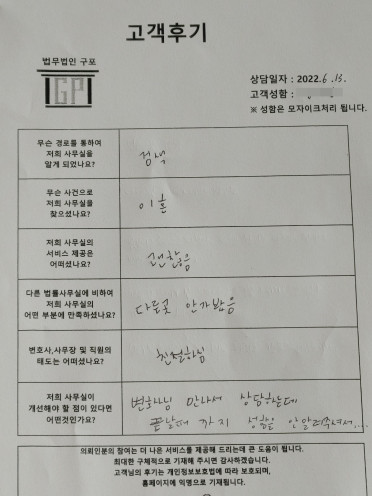 고객후기
법무법인 구포
GP
상담일자 : 2022. 6. 13.
고객성함 :
※ 성함은 모자이크처리 됩니다.
무슨 경로를 통하여
저희 사무실을
알게 되었나요?
검색
무슨 사건으로
저희 사무실을
찾으셨나요?
이혼
저희 사무실의
서비스 제공은
어떠셨나요?
괜찮음
다른 법률사무실에 비하여
저희 사무실의
어떤 부분에 만족하셨나요?
다른곳 안가봤음
변호사,사무장 및 직원의
태도는 어떠셨나요?
친절하심
저희 사무실이
개선해야 할 점이 있다면
어떤것인가요?
변호사님 만나서 상담하는데
끝날때 까지 성함을 안알려주셔서....
의뢰인분의 참여는 더 나은 서비스를 제공해 드리는데 큰 도움이 됩니다.
최대한 구체적으로 기재해 주시면 감사하겠습니다.
고객님의 후기는 개인정보보호법에 따라 보호되며,
홈페이지에 익명으로 기재됩니다.